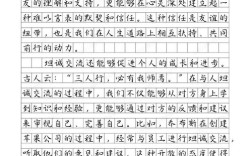 友的理解和支持，更能够在心灵深处建立起一
种难以言表的默契和信任。这种信任是友谊的
纽带，也是我们在人生道路上相互扶持、共同
前行的动力。
坦诚交流还能够促进个人的成长和进步。
古人云：“三人行，必有我师焉。”在与人坦
诚交流的过程中，我们不仅能够从对方身上学
到知识和经验，更能够通过对方的反馈和建议
来审视自己，完善自己。比如，乔布斯在创建
苹果公司的过程中，经常与员工进行坦诚交流，